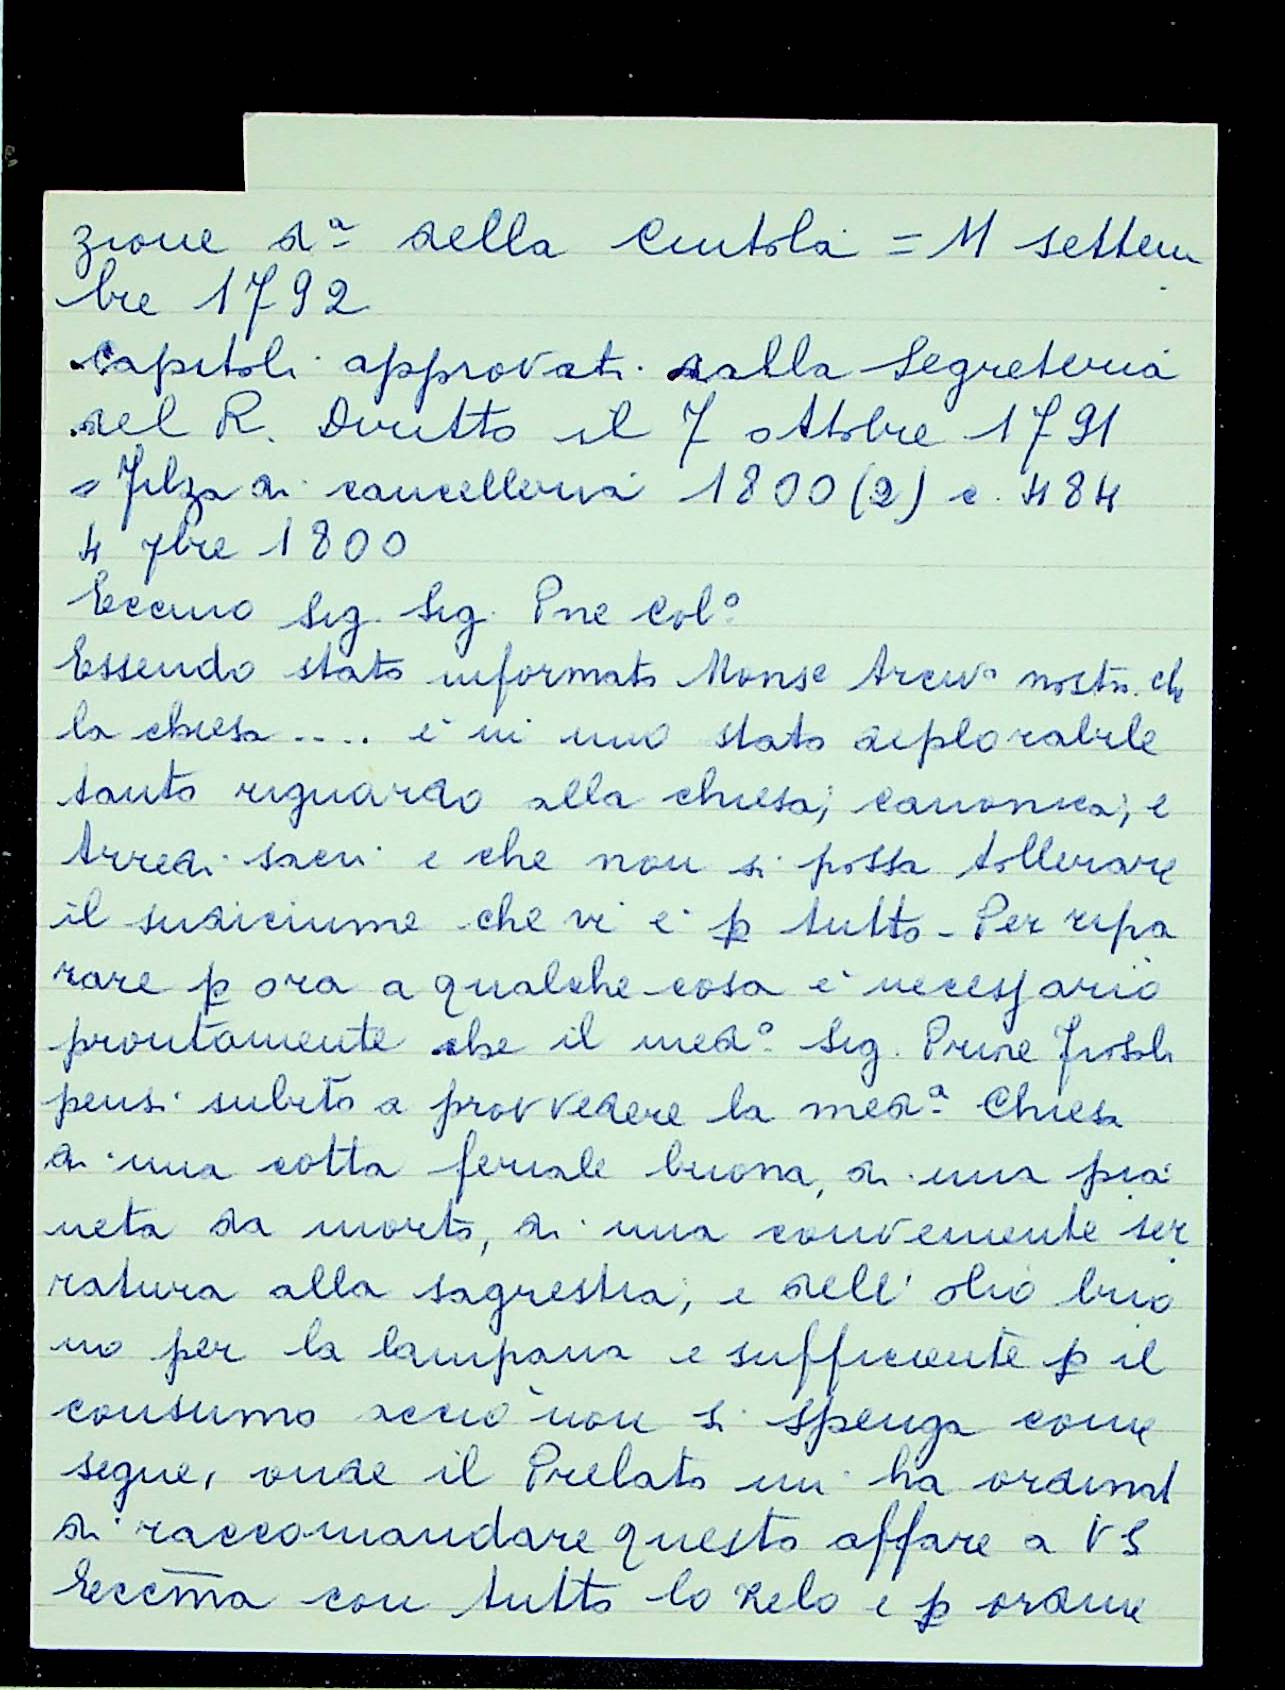 zione dª della Cintola = 11 settem
bre 1792
Capitoli approvati dalla Segreteria
del R. Diritto il 7 ottobre 1791
= Filza di cancelleria 1800 (2) c. 484
4 7bre 1800
Eccmo Sig. Sig. Pne Colº
Essendo stato informato Monse Arcivº nostro che
la chiesa .... è in uno stato deplorabile
tanto riguardo alla chiesa, canonica, e
Arredi sacri e che non si possa tollerare
il sudiciume che vi è p tutto - Per ripa
rare p ora a qualche cosa è necessario
prontamente che il medº Sig. Priore
pensi subito a provvedere la medª Chiesa
di una cotta feriale buona, di una pia
neta da morto, di una conveniente ser
ratura alla sagrestia, e dell' olio buo
no per la lampana e sufficiente p il
consumo acciò non si spenga come
segue, onde il Prelato mi ha ordinat
di raccomandare questo affare a VS
Eccm̄a con tutto lo zelo e p ordine